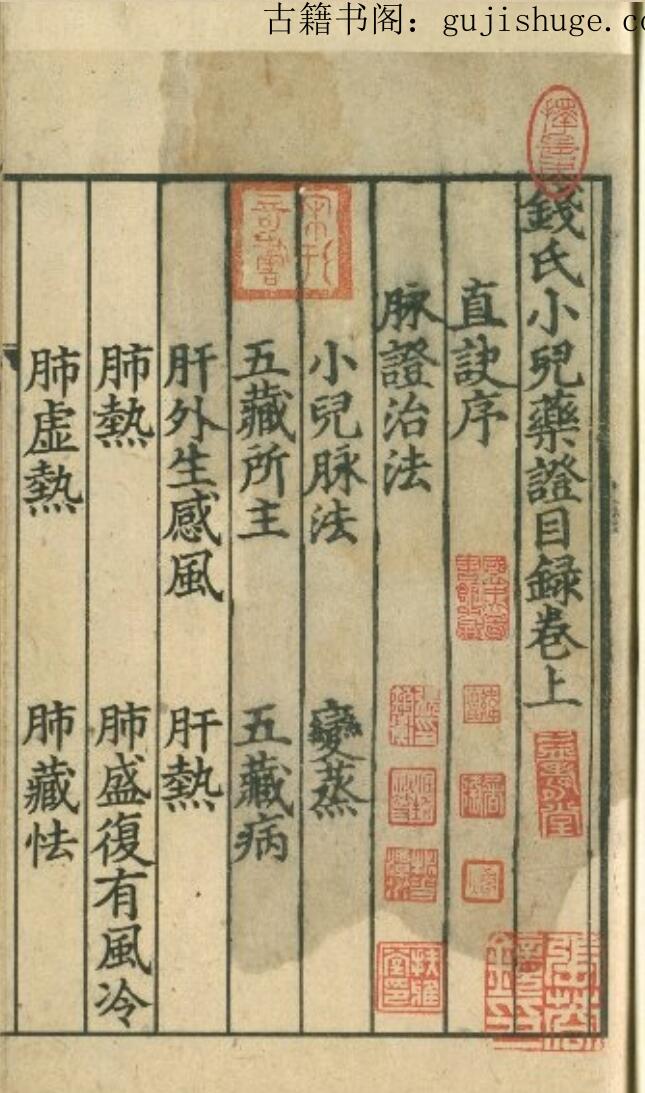 古籍书阁：gujishuge.co
錢氏小兒藥證目録卷上
直訣序
脉證治法
小兒脉法 變蒸
五藏所主 五藏病
肝外生感風 肝熱
肺熱 肺盛復有風冷
肺虛熱 肺藏怯